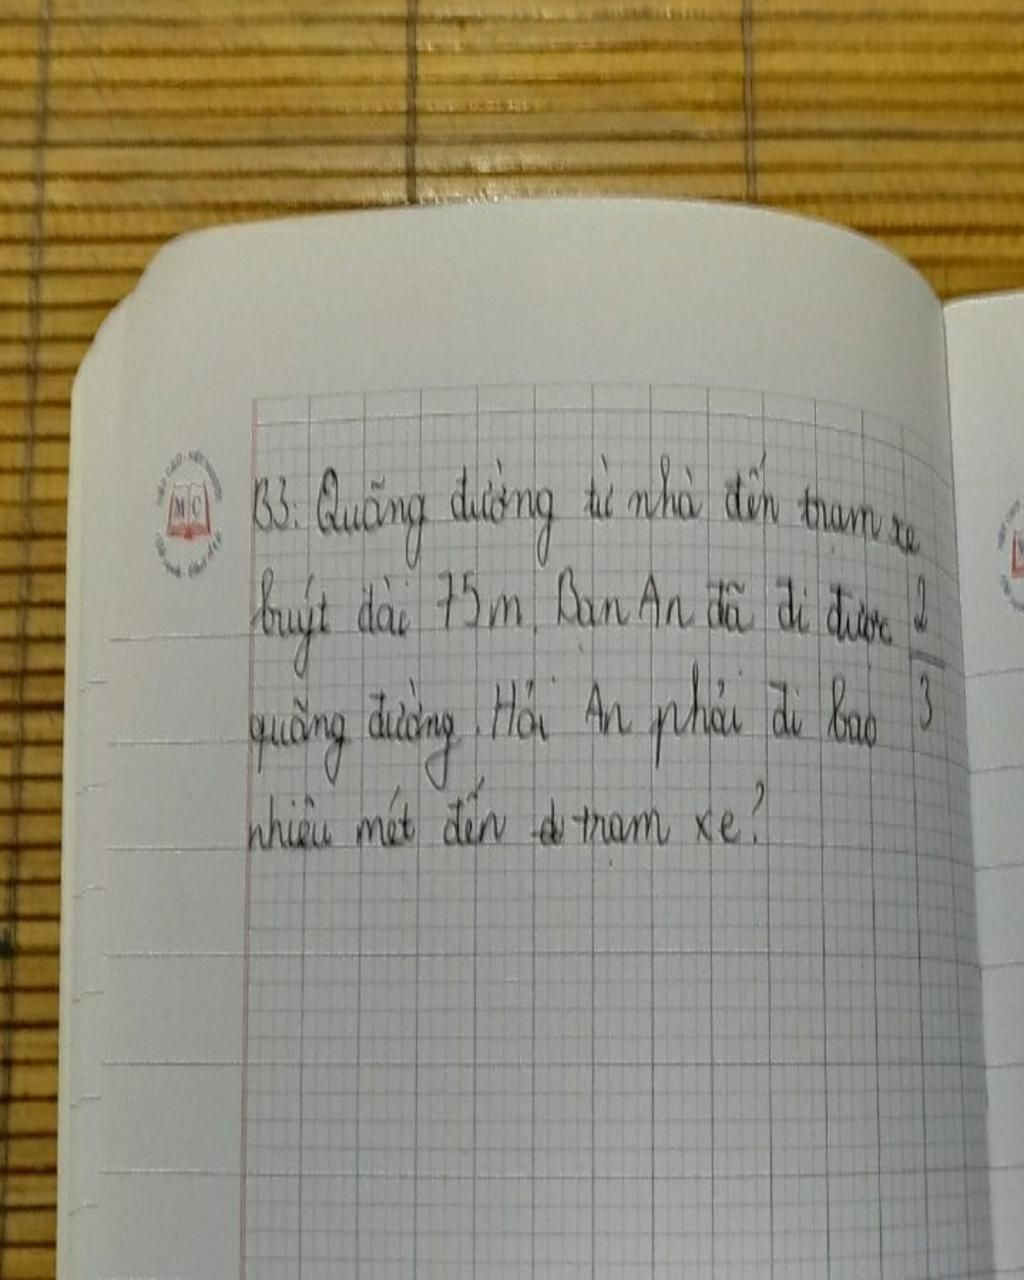 B3: Quãng đường từ nhà đến trạm xe
buýt dài 75m. Bạn An đã đi được 2/3
quãng đường. Hỏi An phải đi bao
nhiêu mét đến trạm xe?
M C